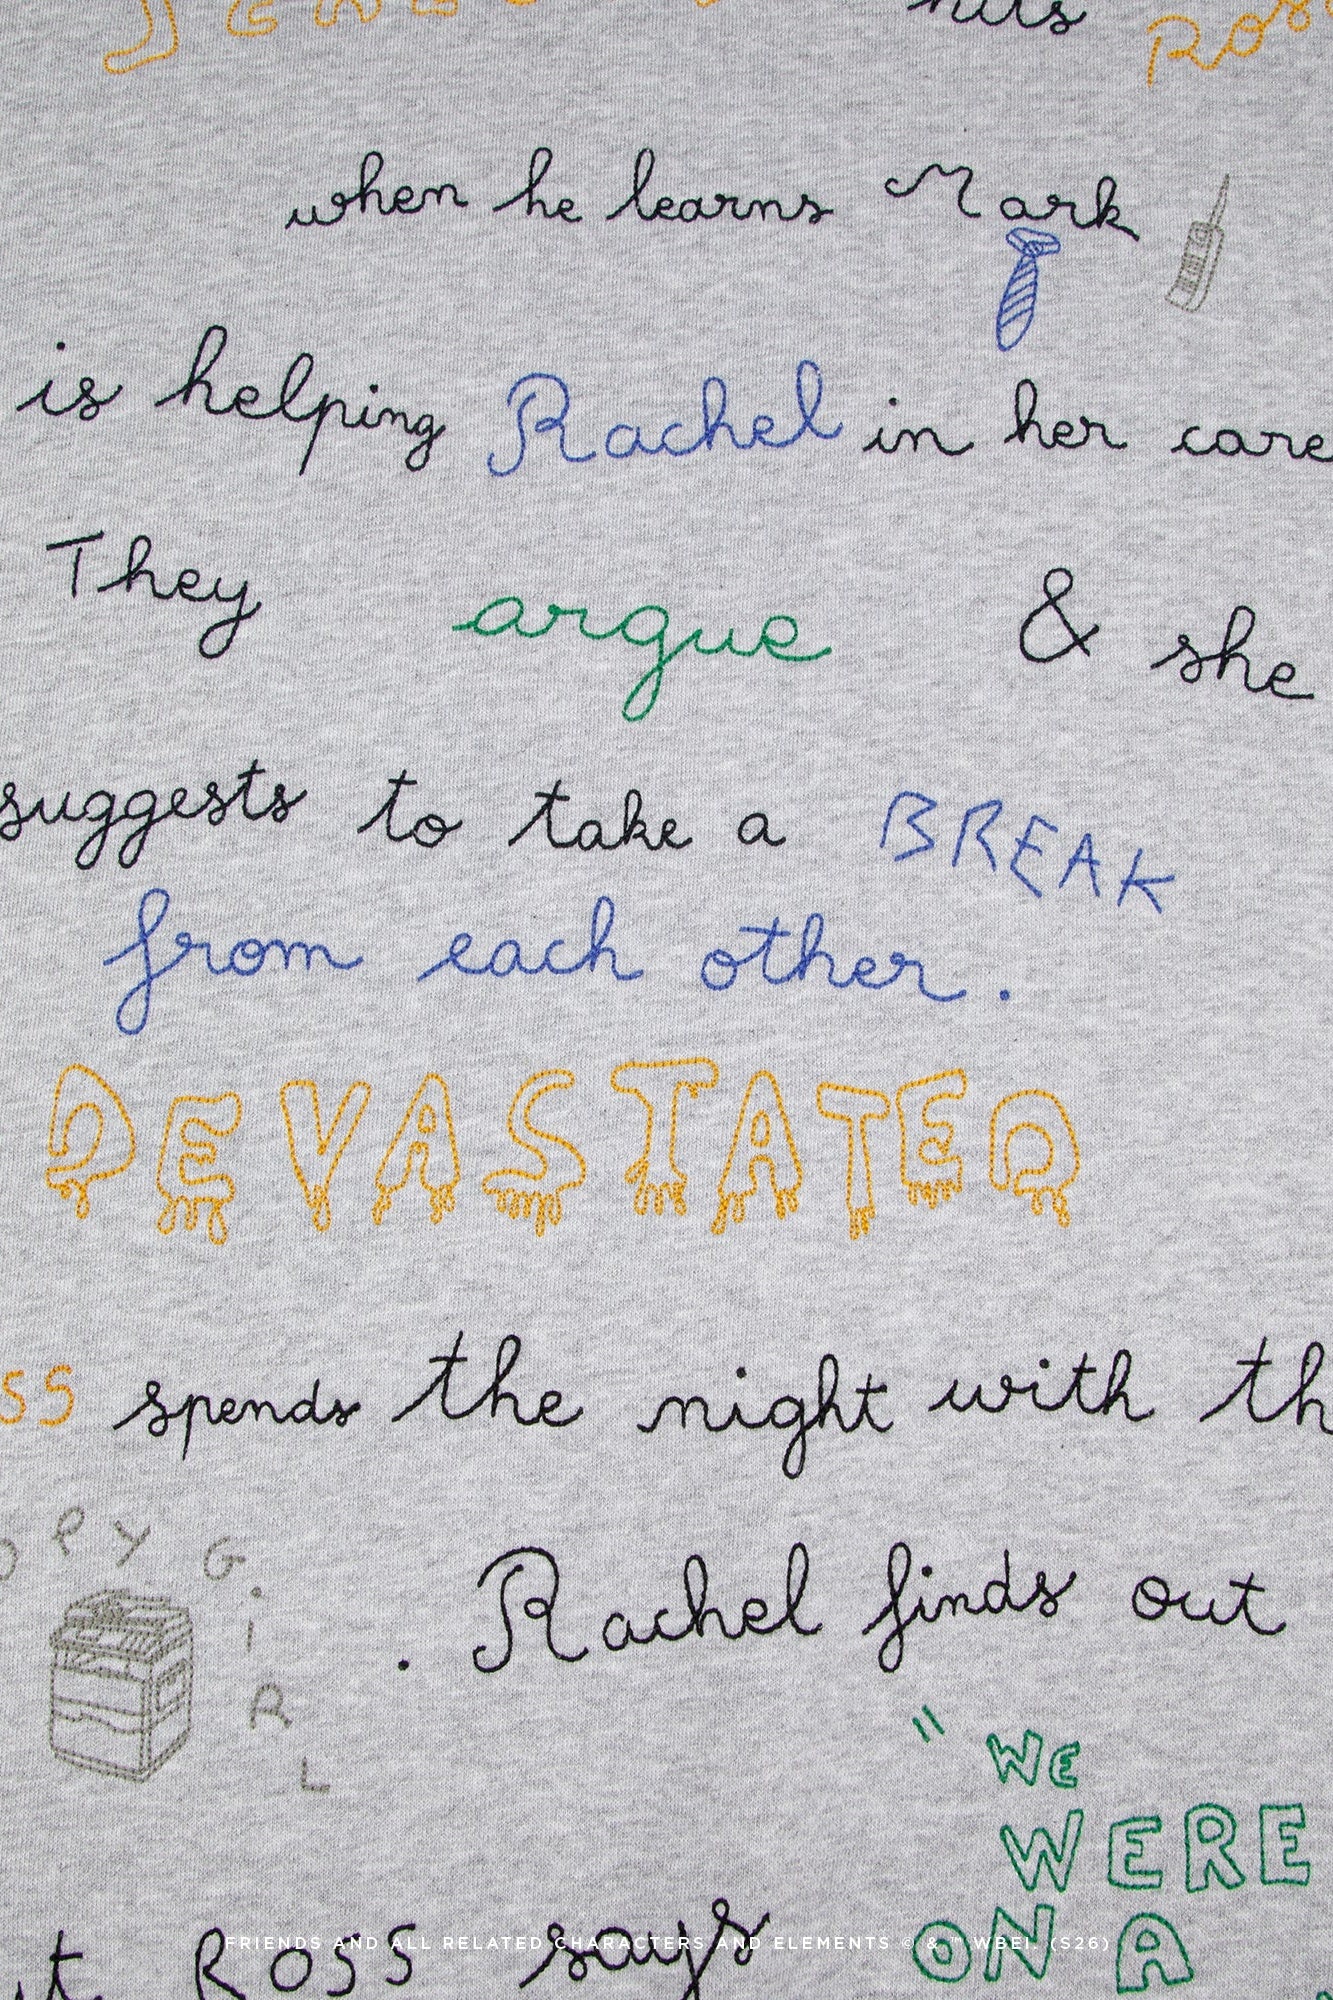 hits Ros
when he learns Mark
is helping Rachel in her care
They argue & she
suggests to take a BREAK
from each other.
DEVASTATED
SS spends the night with th
OPY GiRL
. Rachel finds out
"WE
WERE
ut ROSS says ON A
FRIENDS AND ALL RELATED CHARACTERS AND ELEMENTS © & ™ WBEI. (S26)